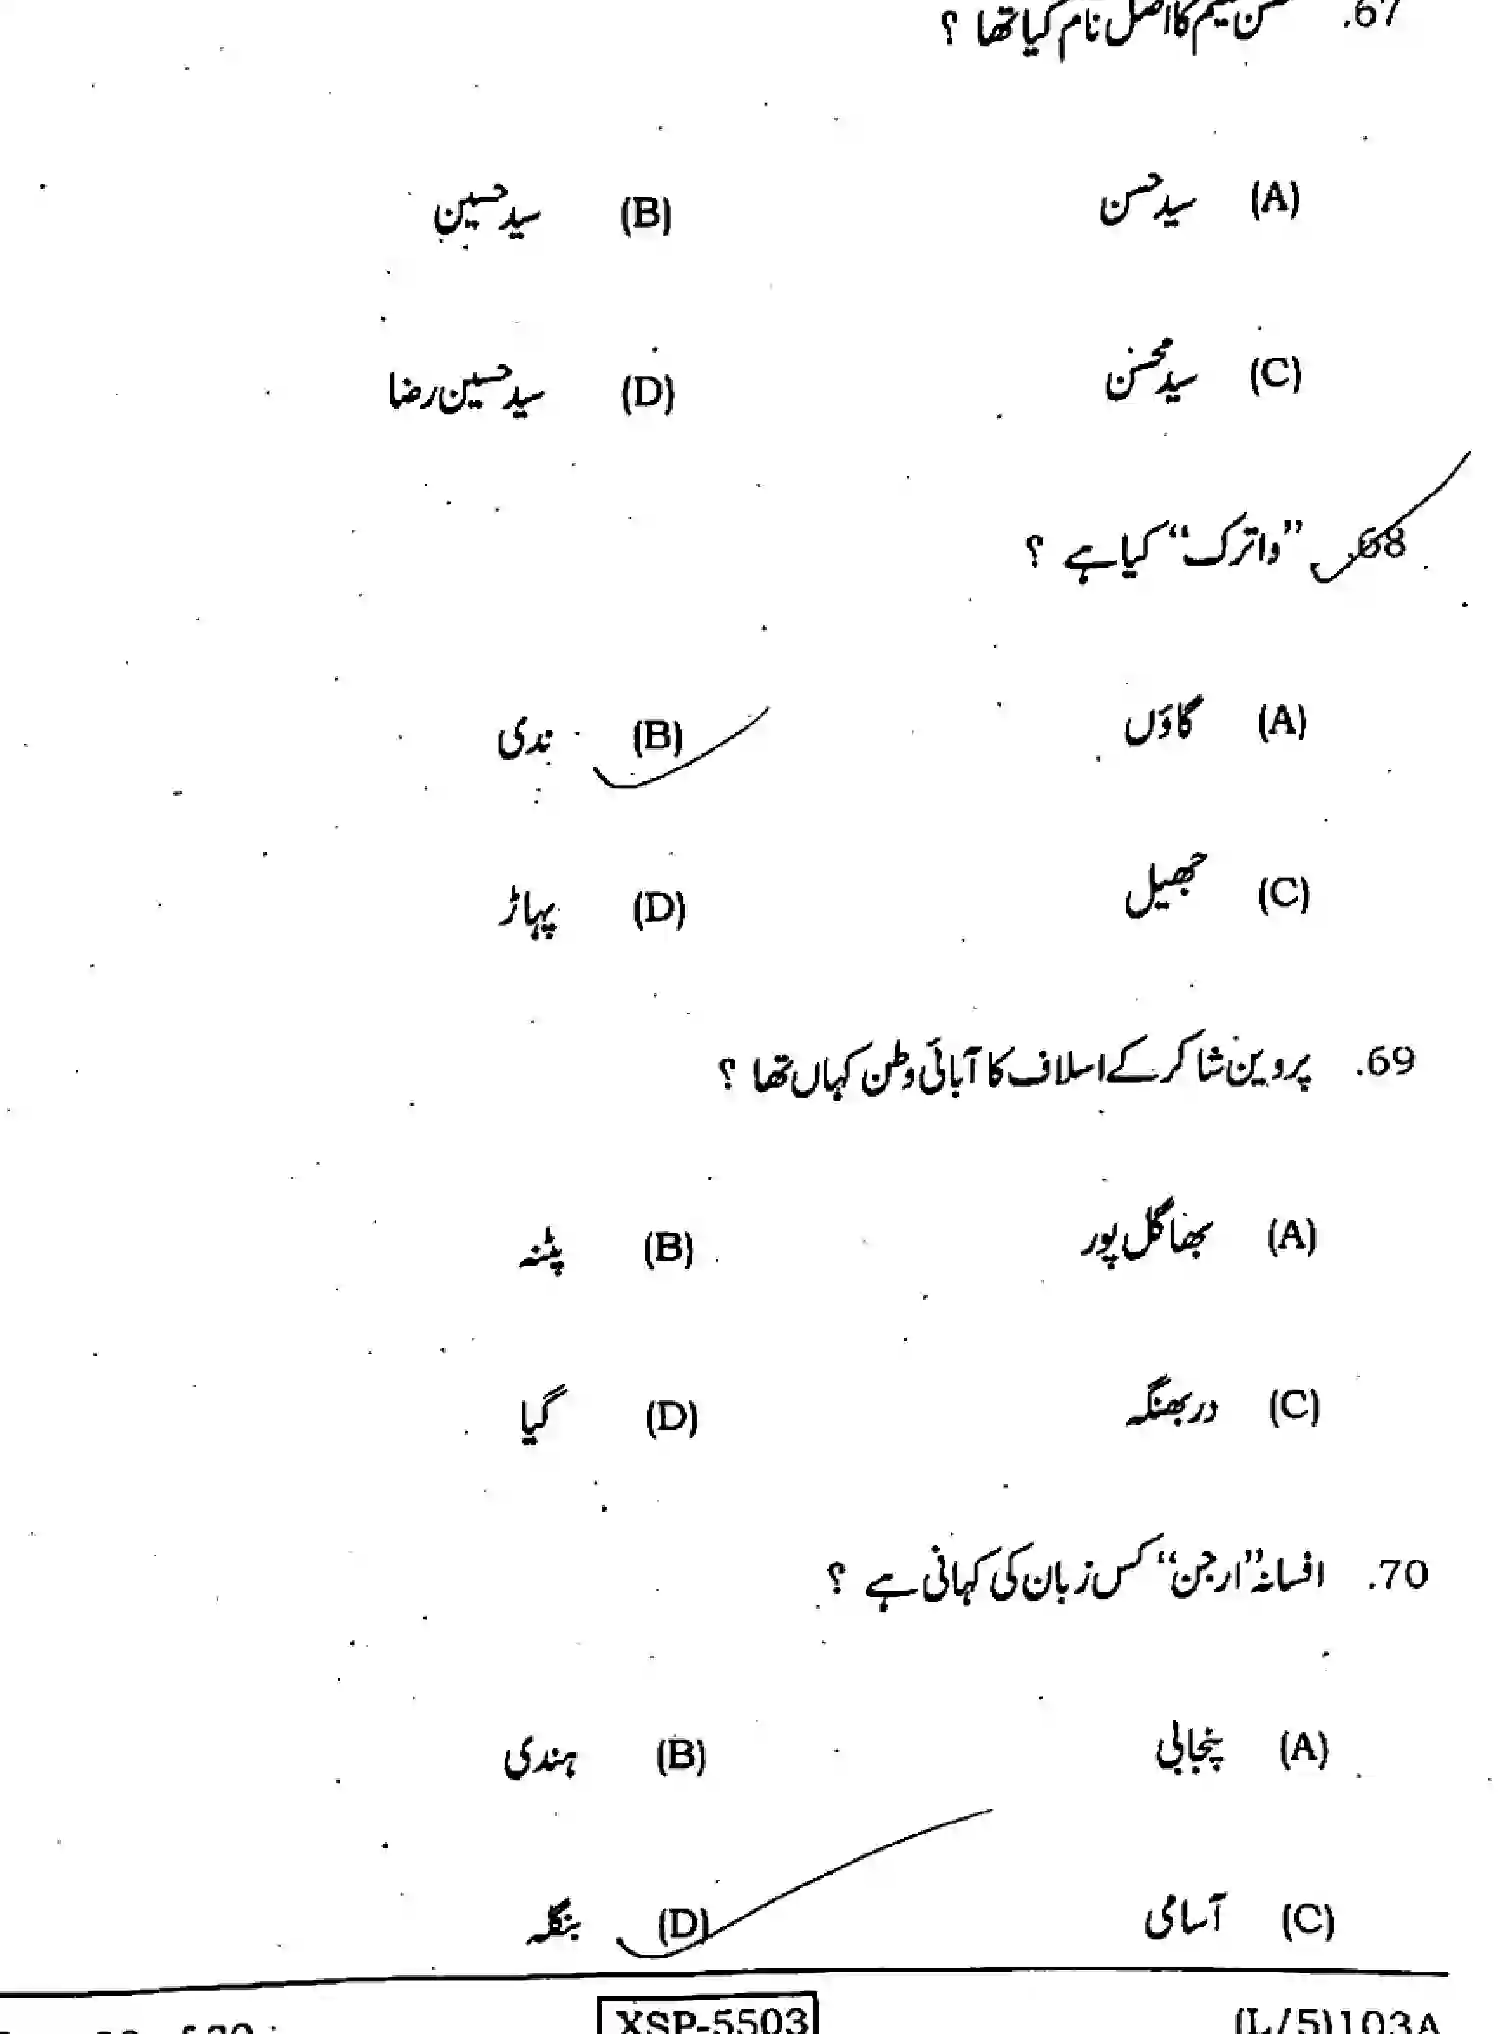 67. کا اصل نام کیا تھا ؟
(A) سید حسن (B) سید حسین
(C) سید محسن (D) سید حسین رضا
68. ”واترک“ کیا ہے ؟
(A) گاؤں (B) ندی
(C) جھیل (D) پہاڑ
69. پروین شاکر کے اسلاف کا آبائی وطن کہاں تھا ؟
(A) بھاگل پور (B) پٹنہ
(C) دربھنگہ (D) گیا
70. افسانہ ”ارجن“ کس زبان کی کہانی ہے ؟
(A) پنجابی (B) ہندی
(C) آسامی (D) بنگلہ
(L/5)103A XSP-5503